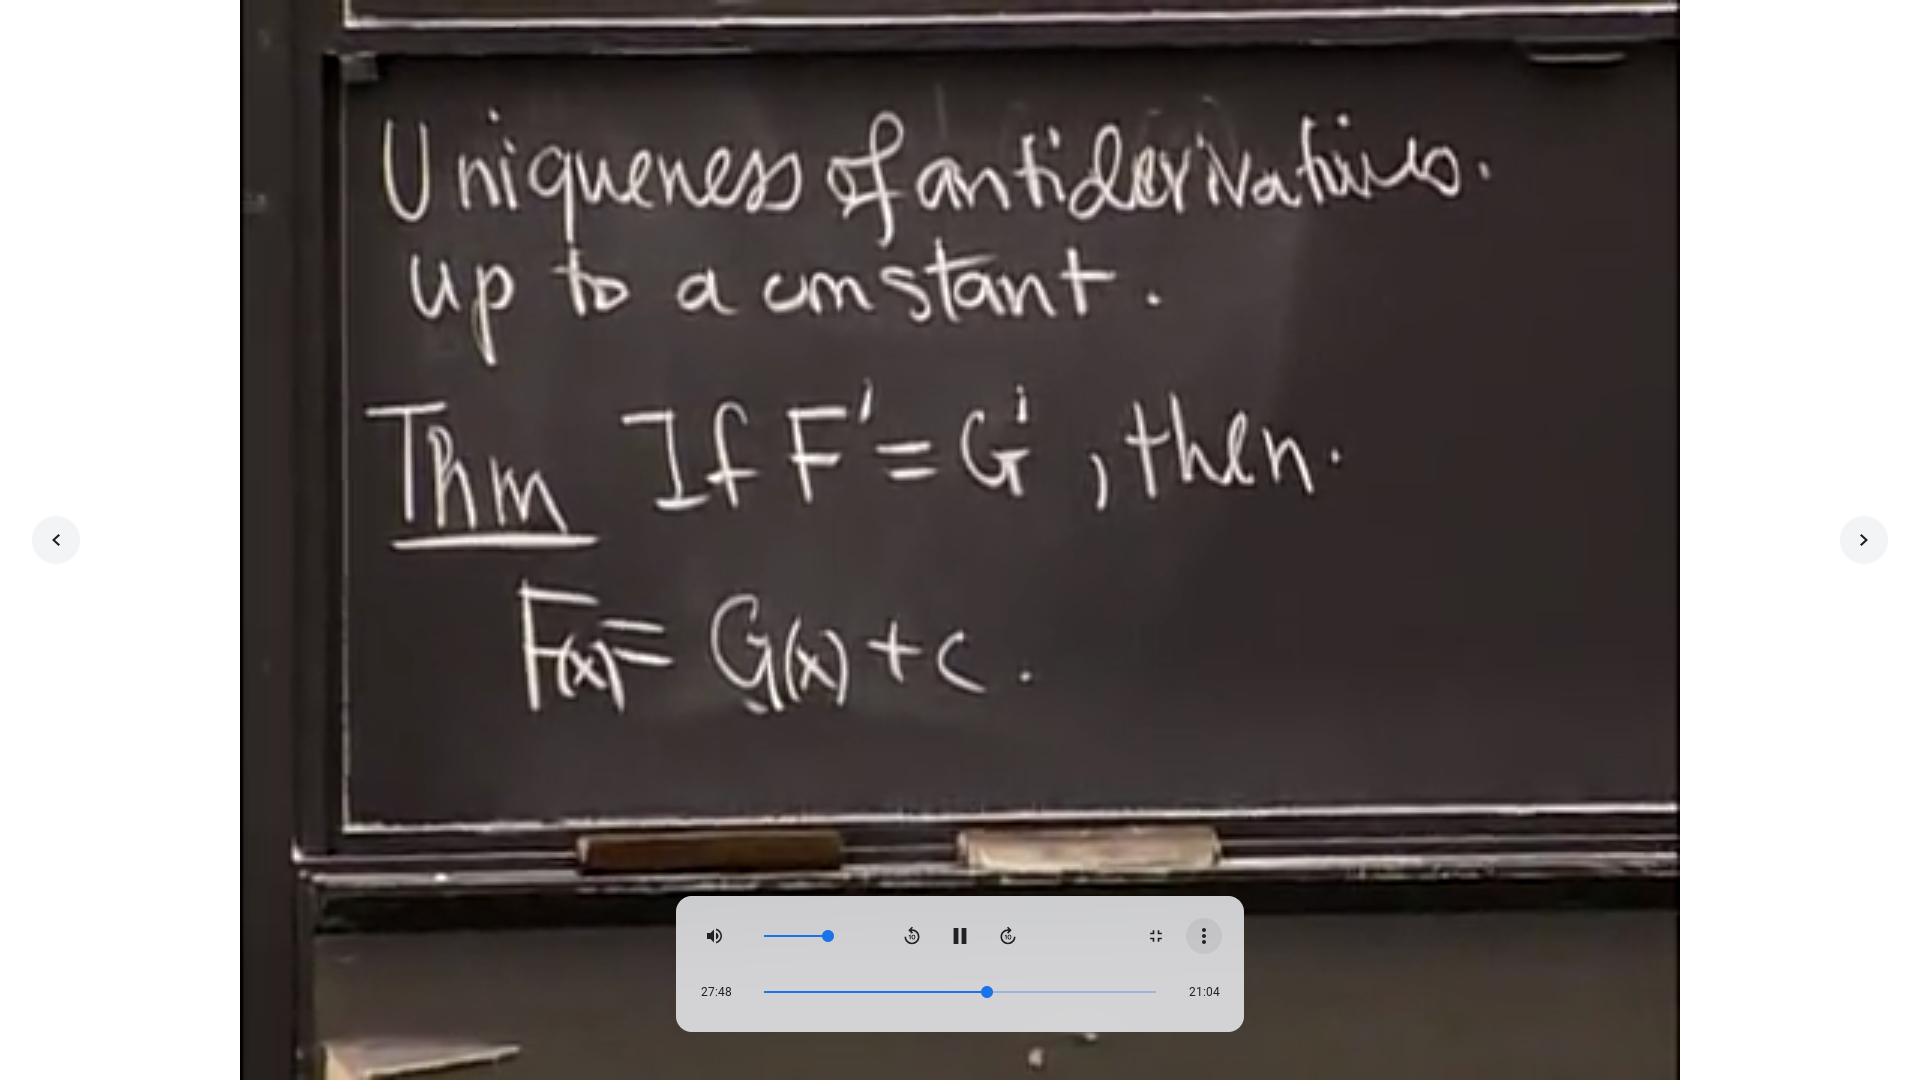 Uniqueness of antiderivatives.
up to a constant.
Thm If F' = G', then.
F(x) = G(x) + c.
10
10
27:48
21:04